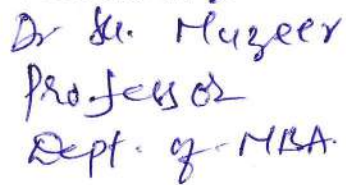 Dr Sk. Muzeer
Professor
Dept. of MBA.